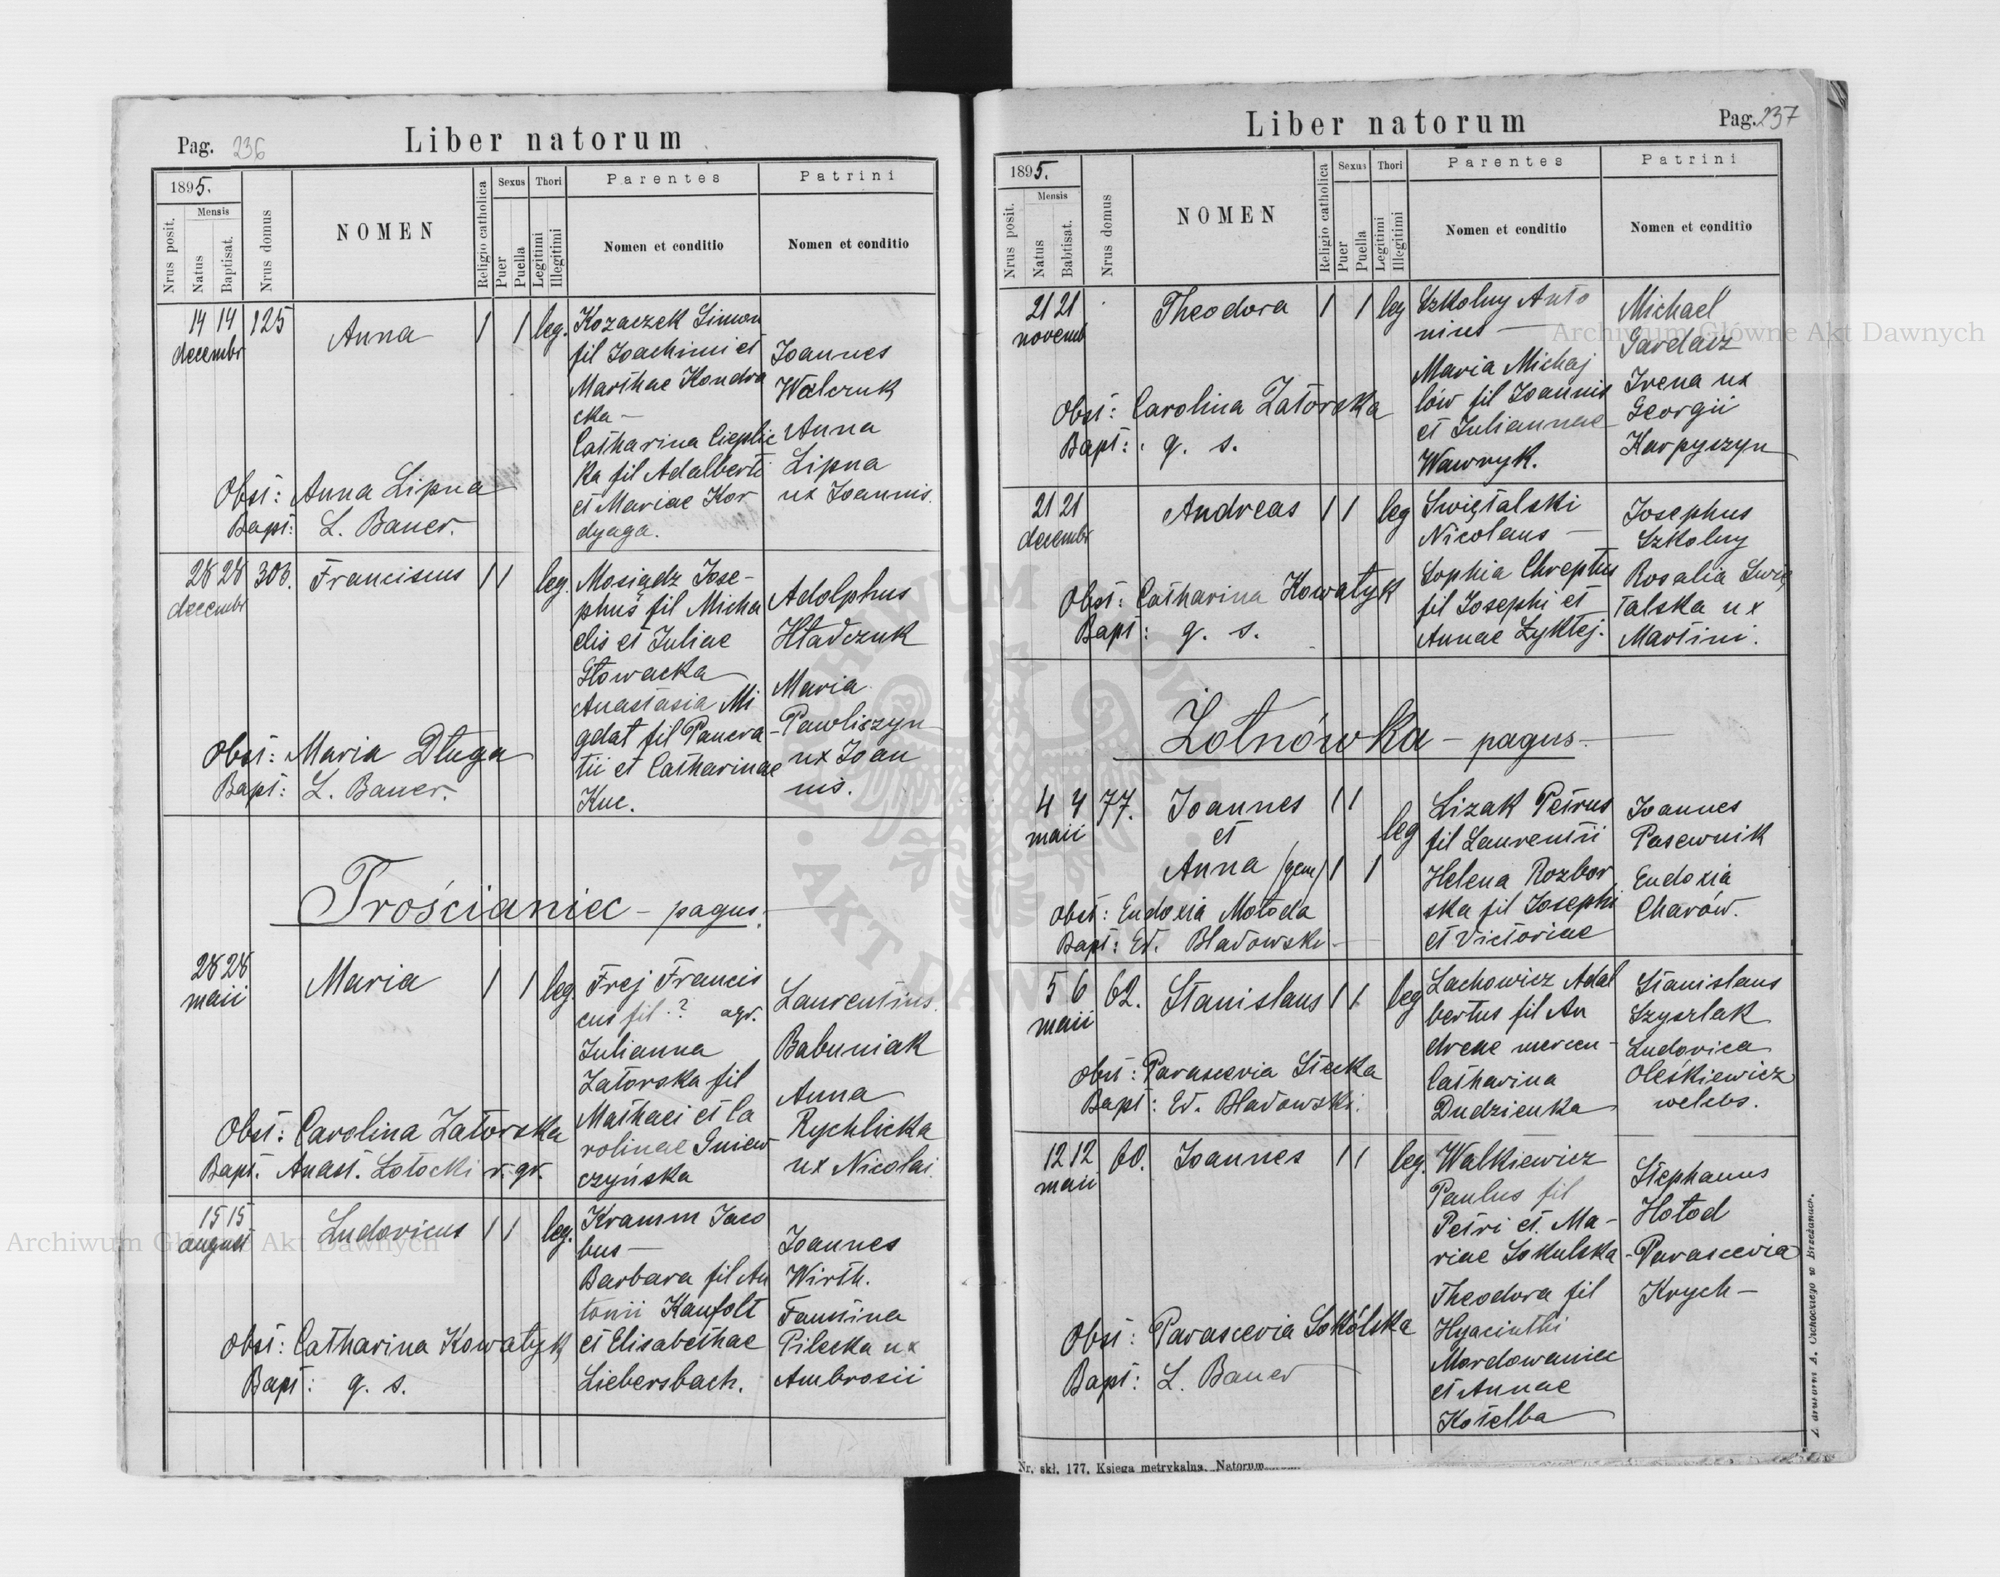 Pag. 236
Liber natorum
1895.
Nrus posit.
Mensis
Natus
Baptisat.
Nrus domus
NOMEN
Religio catholica
Sexus
Puer
Puella
Thori
Legitimi
Illegitimi
Parentes
Nomen et conditio
Patrini
Nomen et conditio
14 14 125
decembr
Anna
1 1 leg.
Kozaczek Simon
fil Joachimi et
Marthae Kondra
cka —
Catharina Cieplic
ka fil Adalberti
et Mariae Kor
dyaga.
Joannes
Walczuk
Anna
Lipna
ux Joannis.
Obst: Anna Lipna
Bapt: L. Bauer.
28 28 306.
decembr
Franciscus
1 1 leg.
Mosiądz Jose-
phus fil Micha
elis et Juliae
Głowacka
Anastasia Mi
gdat fil Pancra-
tii et Catharinae
Kuc.
Adolphus
Hładczuk
Maria
Pawliszyn
ux Joan
nis.
Obst: Maria Długa
Bapt: L. Bauer.
Trościaniec – pagus.
28 28
maii
Maria
1 1 leg.
Frej Francis
cus fil ? agr.
Julianna
Zatorska fil
Mathaei et Ca
rolinae Gniew
czyńska
Laurentius
Babuniak
Anna
Rychlicka
ux Nicolai
Obst: Carolina Zatorska
Bapt. Anast. Łotocki r. gr.
15 15
august
Ludovicus
1 1 leg.
Kramm Jaco
bus —
Barbara fil An
tonii Kaufolt
et Elisabethae
Liebersbach.
Joannes
Wirth.
Faustina
Pilecka ux
Ambrosii
Obst: Catharina Kowałyk
Bapt: q. s.
Liber natorum
Pag. 237
1895.
Nrus posit.
Mensis
Natus
Babtisat.
Nrus domus
NOMEN
Religio catholica
Sexus
Puer
Puella
Thori
Legitimi
Illegitimi
Parentes
Nomen et conditio
Patrini
Nomen et conditio
21 21
novemb
Theodora
1 1 leg
Szkolny Anto
nius —
Maria Michaj
lów fil Joannis
et Juliannae
Wawryk.
Michael
Sardacz
Irena ux
Georgii
Karpyszyn
Obst: Carolina Zatorska
Bapt: q. s.
21 21
decembr
Andreas
1 1 leg
Swiętalski
Nicolaus —
Sophia Chreptus
fil Josephi et
Annae Łyktej.
Josephus
Szkolny
Rosalia Swię
talska ux
Martini.
Obst: Catharina Kowałyk
Bapt: q. s.
Żołnówka – pagus.
4 4 77.
maii
Joannes
et
Anna (gem)
1 1
leg
1 1
Lizak Petrus
fil Laurentii
Helena Rozbor
ska fil Josephi
et Victoriae
Joannes
Pasewnik
Eudoxia
Charów.
Obst: Eudoxia Mołoda
Bapt: Ed. Bładowski
5 6 62.
maii
Stanislaus
1 1 leg
Lachowicz Adal
bertus fil An
dreae mercen-
Catharina
Dudzienka
Stanislaus
Szyszlak
Ludovica
Oleśkiewicz
welebs.
Obst: Parascevia Stecka
Bapt: Ed. Bładowski.
12 12 60.
maii
Joannes
1 1 leg.
Walkiewicz
Paulus fil
Petri et Ma-
riae Sokulska
Theodora fil
Hyacinthi
Mordowaniec
et Annae
Kotelba
Stephanus
Hołod
Parascevia
Krych —
Obst: Parascevia Sokólska
Bapt: L. Bauer
Nr. skł. 177. Księga metrykalna. Natorum
Archiwum Główne Akt Dawnych
Archiwum Główne Akt Dawnych